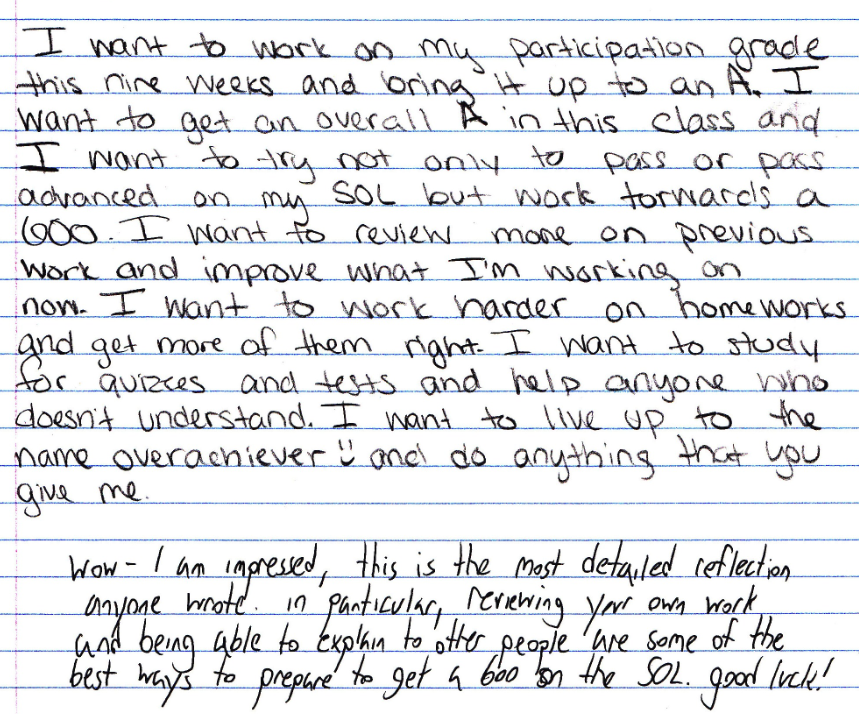 I want to work on my participation grade
this nine weeks and bring it up to an A. I
want to get an overall A in this class and
I want to try not only to pass or pass
advanced on my SOL but work torwards a
600. I want to review more on previous
work and improve what I'm working on
now. I want to work harder on homeworks
and get more of them right. I want to study
for quizces and tests and help anyone who
doesn't understand. I want to live up to the
name overachiever :) and do anything that you
give me.
Wow - I am impressed, this is the most detailed reflection
anyone wrote. in particular, reviewing your own work
and being able to explain to other people are some of the
best ways to prepare to get a 600 on the SOL. good luck!